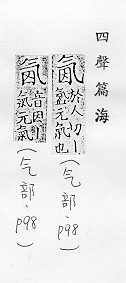 四聲篇海
氤於人切丨氳元氣也(气部·p98)
氤音因丨氣元氣(气部·p98)